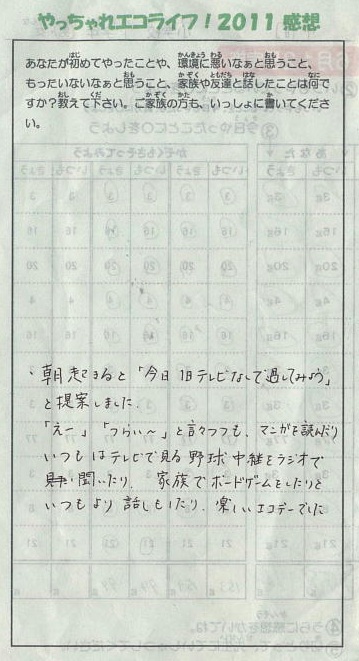 やっちゃれエコライフ！2011 感想
あなたが初めてやったことや、環境に悪いなぁと思うこと、
もったいないなぁと思うこと、家族や友達と話したことは何で
すか？教えて下さい。ご家族の方も、いっしょに書いてくださ
い。
・朝起きると「今日1日テレビなしで過してみよう」
と提案しました。
「えー」「つらい〜」と言いつつも、マンガを読んだり
いつもはテレビで見る野球中継をラジオで
聞いたり、家族でボードゲームをしたりと
いつもより話しもしたり、楽しいエコデーでした